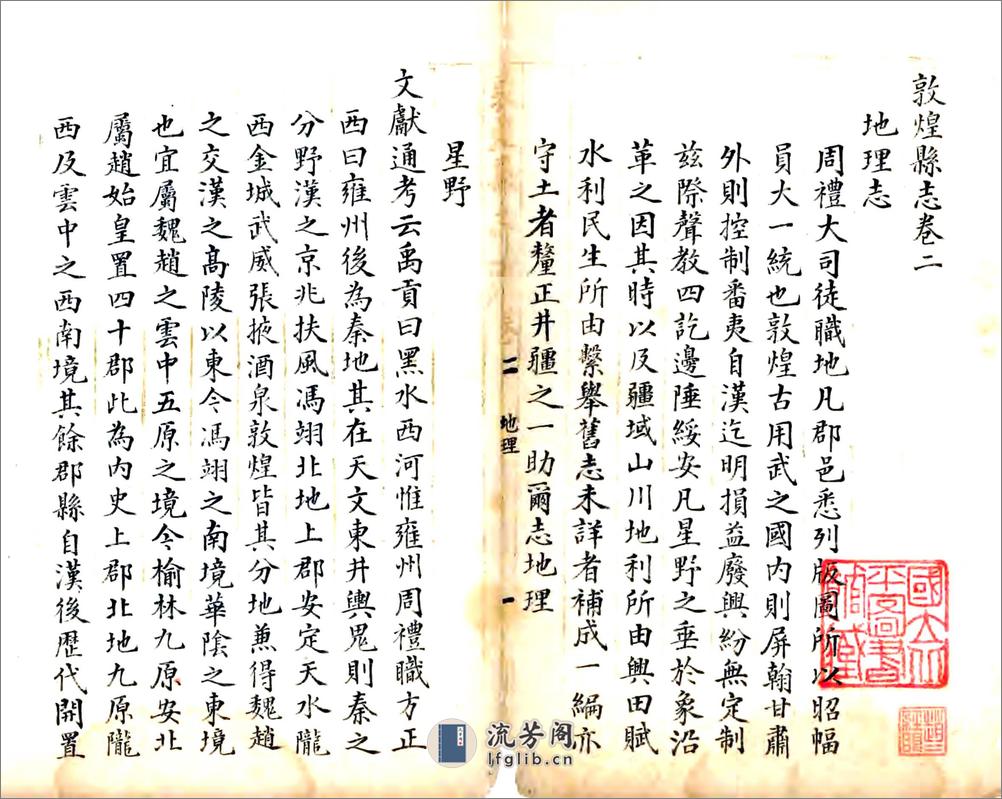 敦煌縣志卷二
地理志
周禮大司徒職地凡郡邑悉列版圖所以昭幅
員大一統也敦煌古用武之國内則屏翰甘肅
外則控制番夷自漢迄明損益廢興紛無定制
茲際聲教四訖邊陲綏安凡星野之垂於象沿
革之因其時以及疆域山川地利所由興田賦
水利民生所由繫舉舊志未詳者補成一編亦
守土者釐正井疆之一助爾志地理
卷二 地理 一
星野
文獻通考云禹貢曰黑水西河惟雍州周禮職方正
西曰雍州後為秦地其在天文東井輿鬼則秦之
分野漢之京兆扶風馮翊北地上郡安定天水隴
西金城武威張掖酒泉敦煌皆其分地兼得魏趙
之交漢之高陵以東今馮翊之南境華陰之東境
也宜屬魏趙之雲中五原之境今榆林九原安北
屬趙始皇置四十郡此為内史上郡北地九原隴
西及雲中之西南境其餘郡縣自漢後歷代開置
國立北平圖書館藏
流芳阁
lfglib.cn